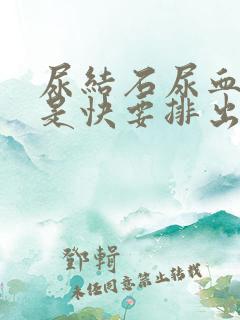 尿結石尿血
是快要排出
鄧輯
未任同意禁止转载